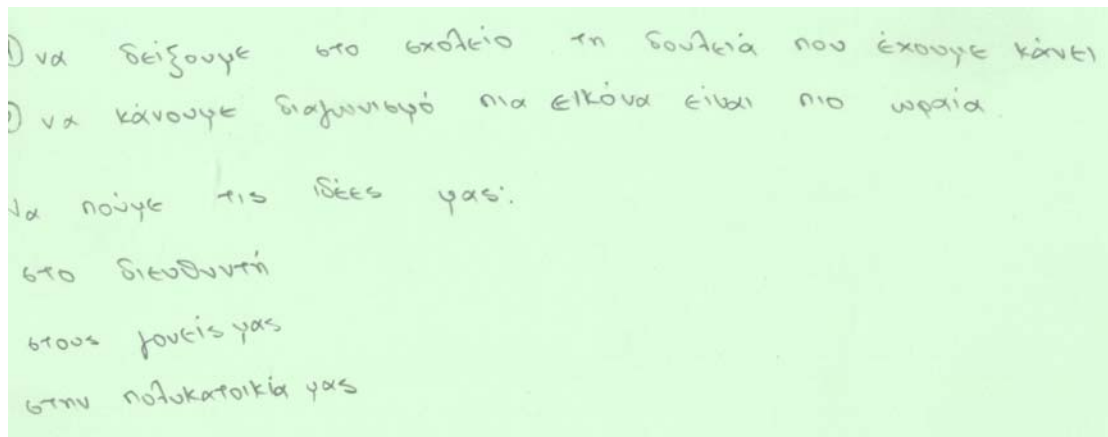 1) να δείξουμε στο σχολείο τη δουλειά που έχουμε κάνει
2) να κάνουμε διαγωνισμό πια εικόνα είναι πιο ωραία.
Να πούμε τις ιδέες μας:
στο διευθυντή
στους γονείς μας
στην πολυκατοικία μας